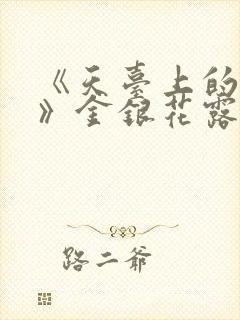 《天臺上的
》金銀花露
路二爷